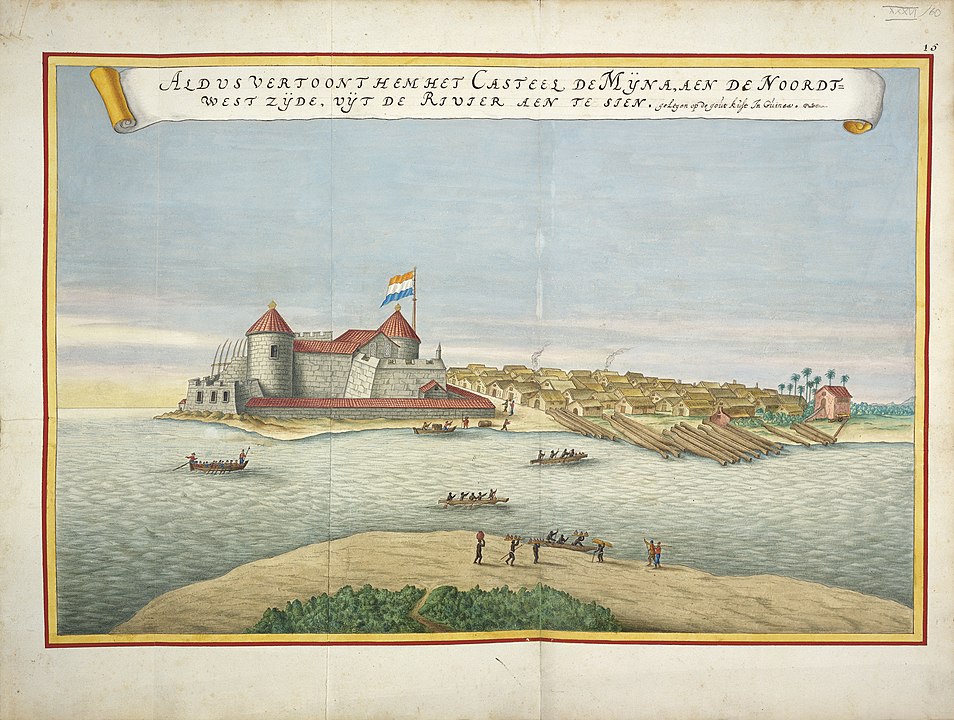 XXXVI /60
16
ALDUS VERTOONT HEM HET CASTEEL DE MŸNA, AEN DE NOORDT=
WEST ZŸDE, VŸT DE RIVIER AEN TE SIEN. gelegen op de gout kust In Guinea.